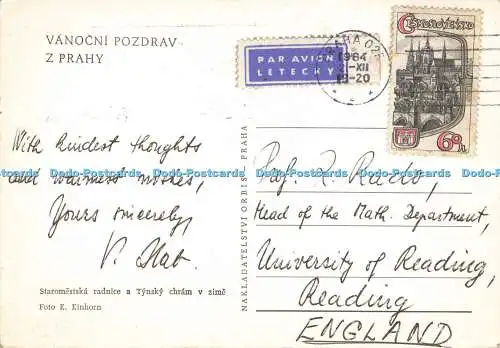 VÁNOČNÍ POZDRAV
Z PRAHY
PAR AVION
LETECKY
PRAHA 025
1964
-XII
19-20
ČESKOSLOVENSKO
60
With kindest thoughts
and warmest wishes,
Yours sincerely,
V.
Staroměstská radnice a Týnský chrám v zimě
Foto K. Einhorn
NAKLADATELSTVÍ ORBIS PRAHA
Prof. R. Rado,
Head of the Math. Department,
University of Reading,
Reading
ENGLAND
Dodo-Postcards Dodo-Postcards Dodo-Postcards Dodo-Postcards Dodo-Postcards